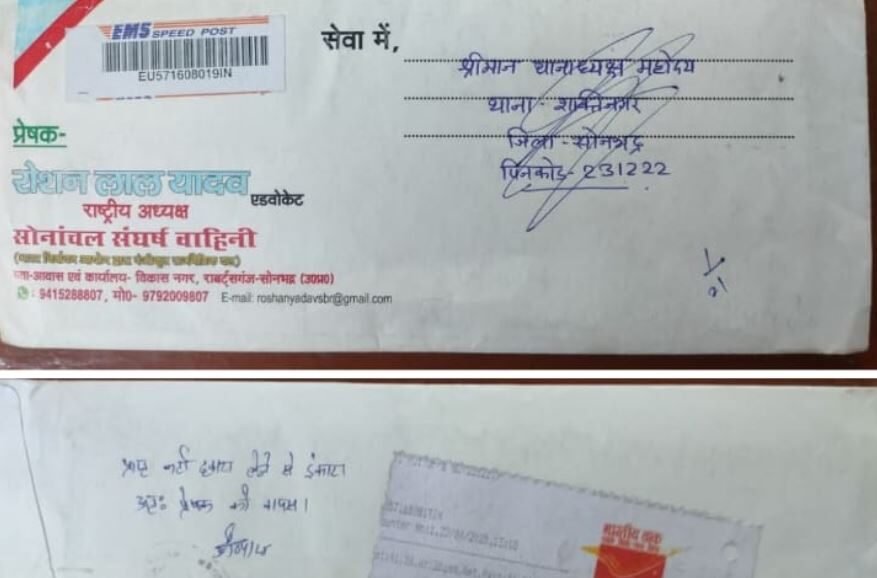 EMS SPEED POST
EU571608019IN
सेवा में,
श्रीमान थानाध्यक्ष महोदय
थाना - शक्तिनगर
जिला - सोनभद्र
पिनकोड - 231222
प्रेषक-
रोशन लाल यादव एडवोकेट
राष्ट्रीय अध्यक्ष
सोनांचल संघर्ष वाहिनी
(भारत निर्वाचन आयोग द्वारा पंजीकृत राजनैतिक दल)
पता-आवास एवं कार्यालय- विकास नगर, राबर्ट्सगंज-सोनभद्र (उ0प्र0)
: 9415288807, मो0- 9792009807 E-mail: roshanyadavsbr@gmail.com
लेने से इंकार
अतः प्रेषक को वापस।
भारतीय डाक